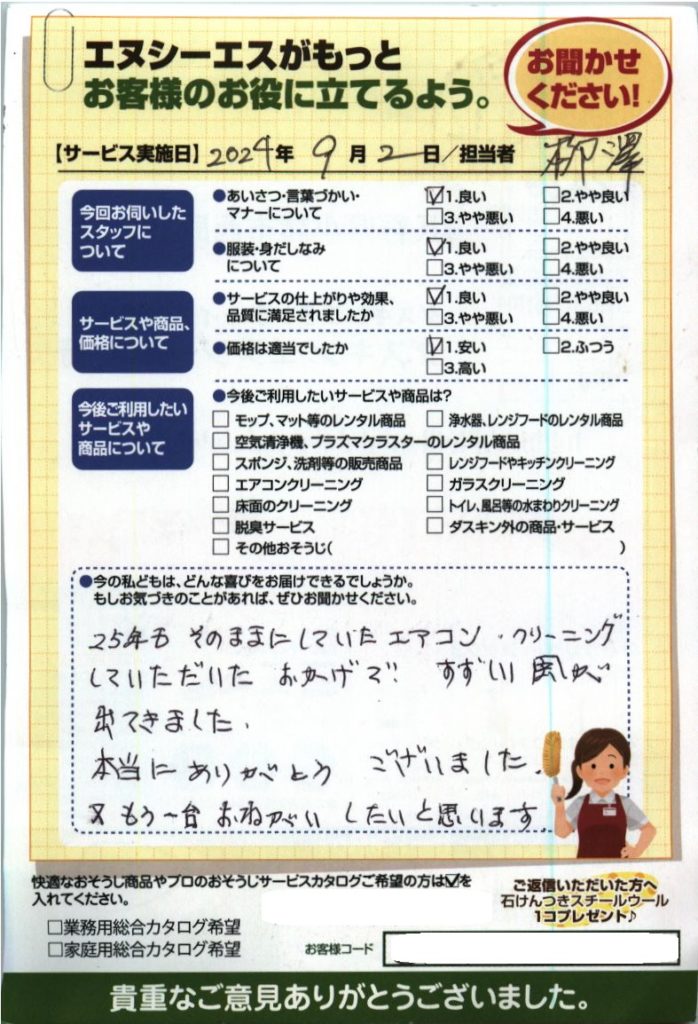 エヌシーエスがもっと
お客様のお役に立てるよう。
お聞かせ
ください!
【サービス実施日】2024年 9月 2日/担当者 柳澤
今回お伺いした
スタッフに
ついて
●あいさつ・言葉づかい・
マナーについて
☑1.良い □2.やや良い
□3.やや悪い □4.悪い
●服装・身だしなみ
について
☑1.良い □2.やや良い
□3.やや悪い □4.悪い
サービスや商品、
価格について
●サービスの仕上がりや効果、
品質に満足されましたか
☑1.良い □2.やや良い
□3.やや悪い □4.悪い
●価格は適当でしたか
☑1.安い □2.ふつう
□3.高い
今後ご利用したい
サービスや
商品について
●今後ご利用したいサービスや商品は?
□モップ、マット等のレンタル商品 □浄水器、レンジフードのレンタル商品
□空気清浄機、プラズマクラスターのレンタル商品
□スポンジ、洗剤等の販売商品 □レンジフードやキッチンクリーニング
□エアコンクリーニング □ガラスクリーニング
□床面のクリーニング □トイレ、風呂等の水まわりクリーニング
□脱臭サービス □ダスキン外の商品・サービス
□その他おそうじ( )
●今の私どもは、どんな喜びをお届けできるでしょうか。
もしお気づきのことがあれば、ぜひお聞かせください。
25年も そのままにしていた エアコン・クリーニング
していただいた おかげで すずしい 風が
出てきました.
本当に ありがとう ございました.
又 もう一台 おねがい したいと思います.
快適なおそうじ商品やプロのおそうじサービスカタログご希望の方は☑を
入れてください。
□業務用総合カタログ希望
□家庭用総合カタログ希望
お客様コード
ご返信いただいた方へ
石けんつきスチールウール
1コプレゼント♪
貴重なご意見ありがとうございました。